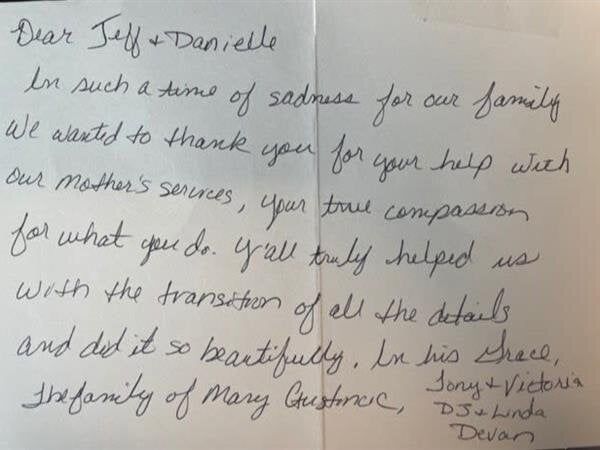 Dear Jeff + Danielle
In such a time of sadness for our family
We wanted to thank you for your help with
our mother's services, your true compassion
for what you do. Y'all truly helped us
with the transition of all the details
and did it so beautifully. In his Grace,
The family of Mary
Tony + Victoria
DJ + Linda
Devan